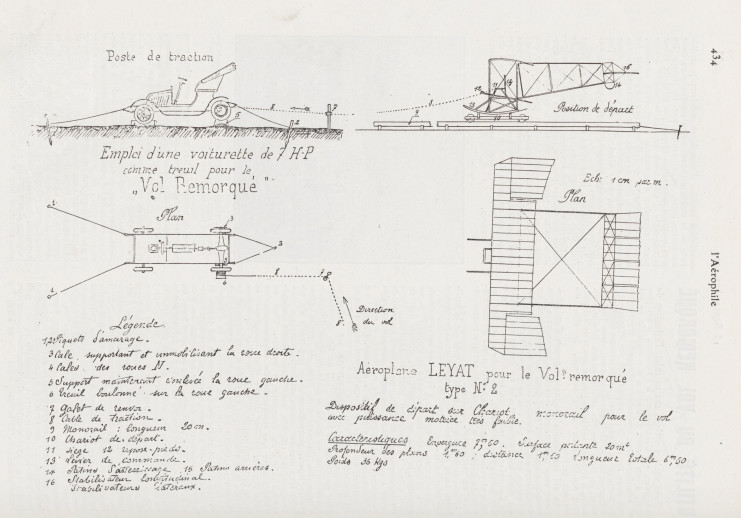 434
l'Aérophile
Poste de traction
Emploi d'une voiturette de 7 H-P
comme treuil pour le
"Vol Remorqué"
Plan
Direction
du vol
Position de départ
Ech: 1 cm par m.
Plan
Légende
1,2 Piquets d'amarage.
3 Cale supportant et immobilisant la roue droite.
4 Cales des roues AV.
5 Support maintenant enlevée la roue gauche.
6 Treuil boulonné sur la roue gauche.
7 Galet de renvoi.
8 Cable de traction.
9 Monorail: longueur 20m.
10 Chariot de départ.
11 Siège 12 repose-pieds.
13 Levier de commande.
14 Patins d'atterrissage 15 Patins arrières.
16 Stabilisateur longitudinal.
Stabilisateurs latéraux.
Aéroplane LEYAT pour le Vol remorqué
type N° 2
Dispositif de départ sur Chariot, monorail pour le vol
avec puissance motrice très faible.
Caractéristiques Envergure 7m50. Surface portante 20m²
Profondeur des plans 1m60; distance 1m50 Longueur totale 6m50
Poids 36 Kgs